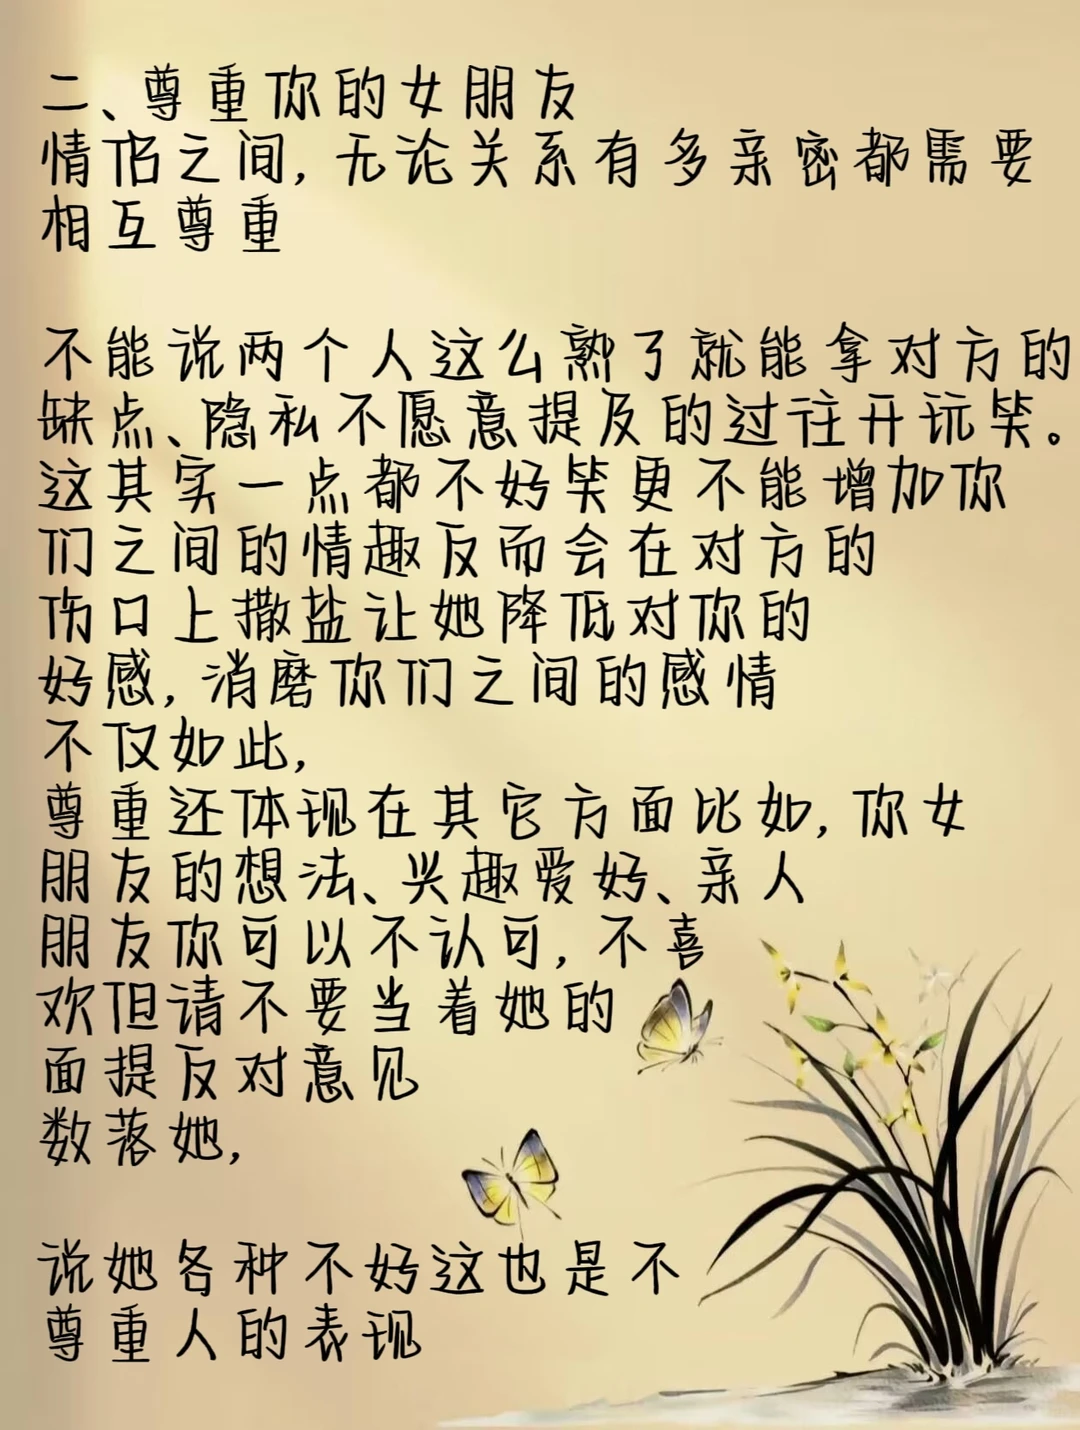 二、尊重你的女朋友
情侣之间,无论关系有多亲密都需要
相互尊重
不能说两个人这么熟了就能拿对方的
缺点、隐私不愿意提及的过往开玩笑。
这其实一点都不好笑更不能增加你
们之间的情趣反而会在对方的
伤口上撒盐让她降低对你的
好感,消磨你们之间的感情
不仅如此,
尊重还体现在其它方面比如,你女
朋友的想法、兴趣爱好、亲人
朋友你可以不认可,不喜
欢但请不要当着她的
面提反对意见
数落她,
说她各种不好这也是不
尊重人的表现